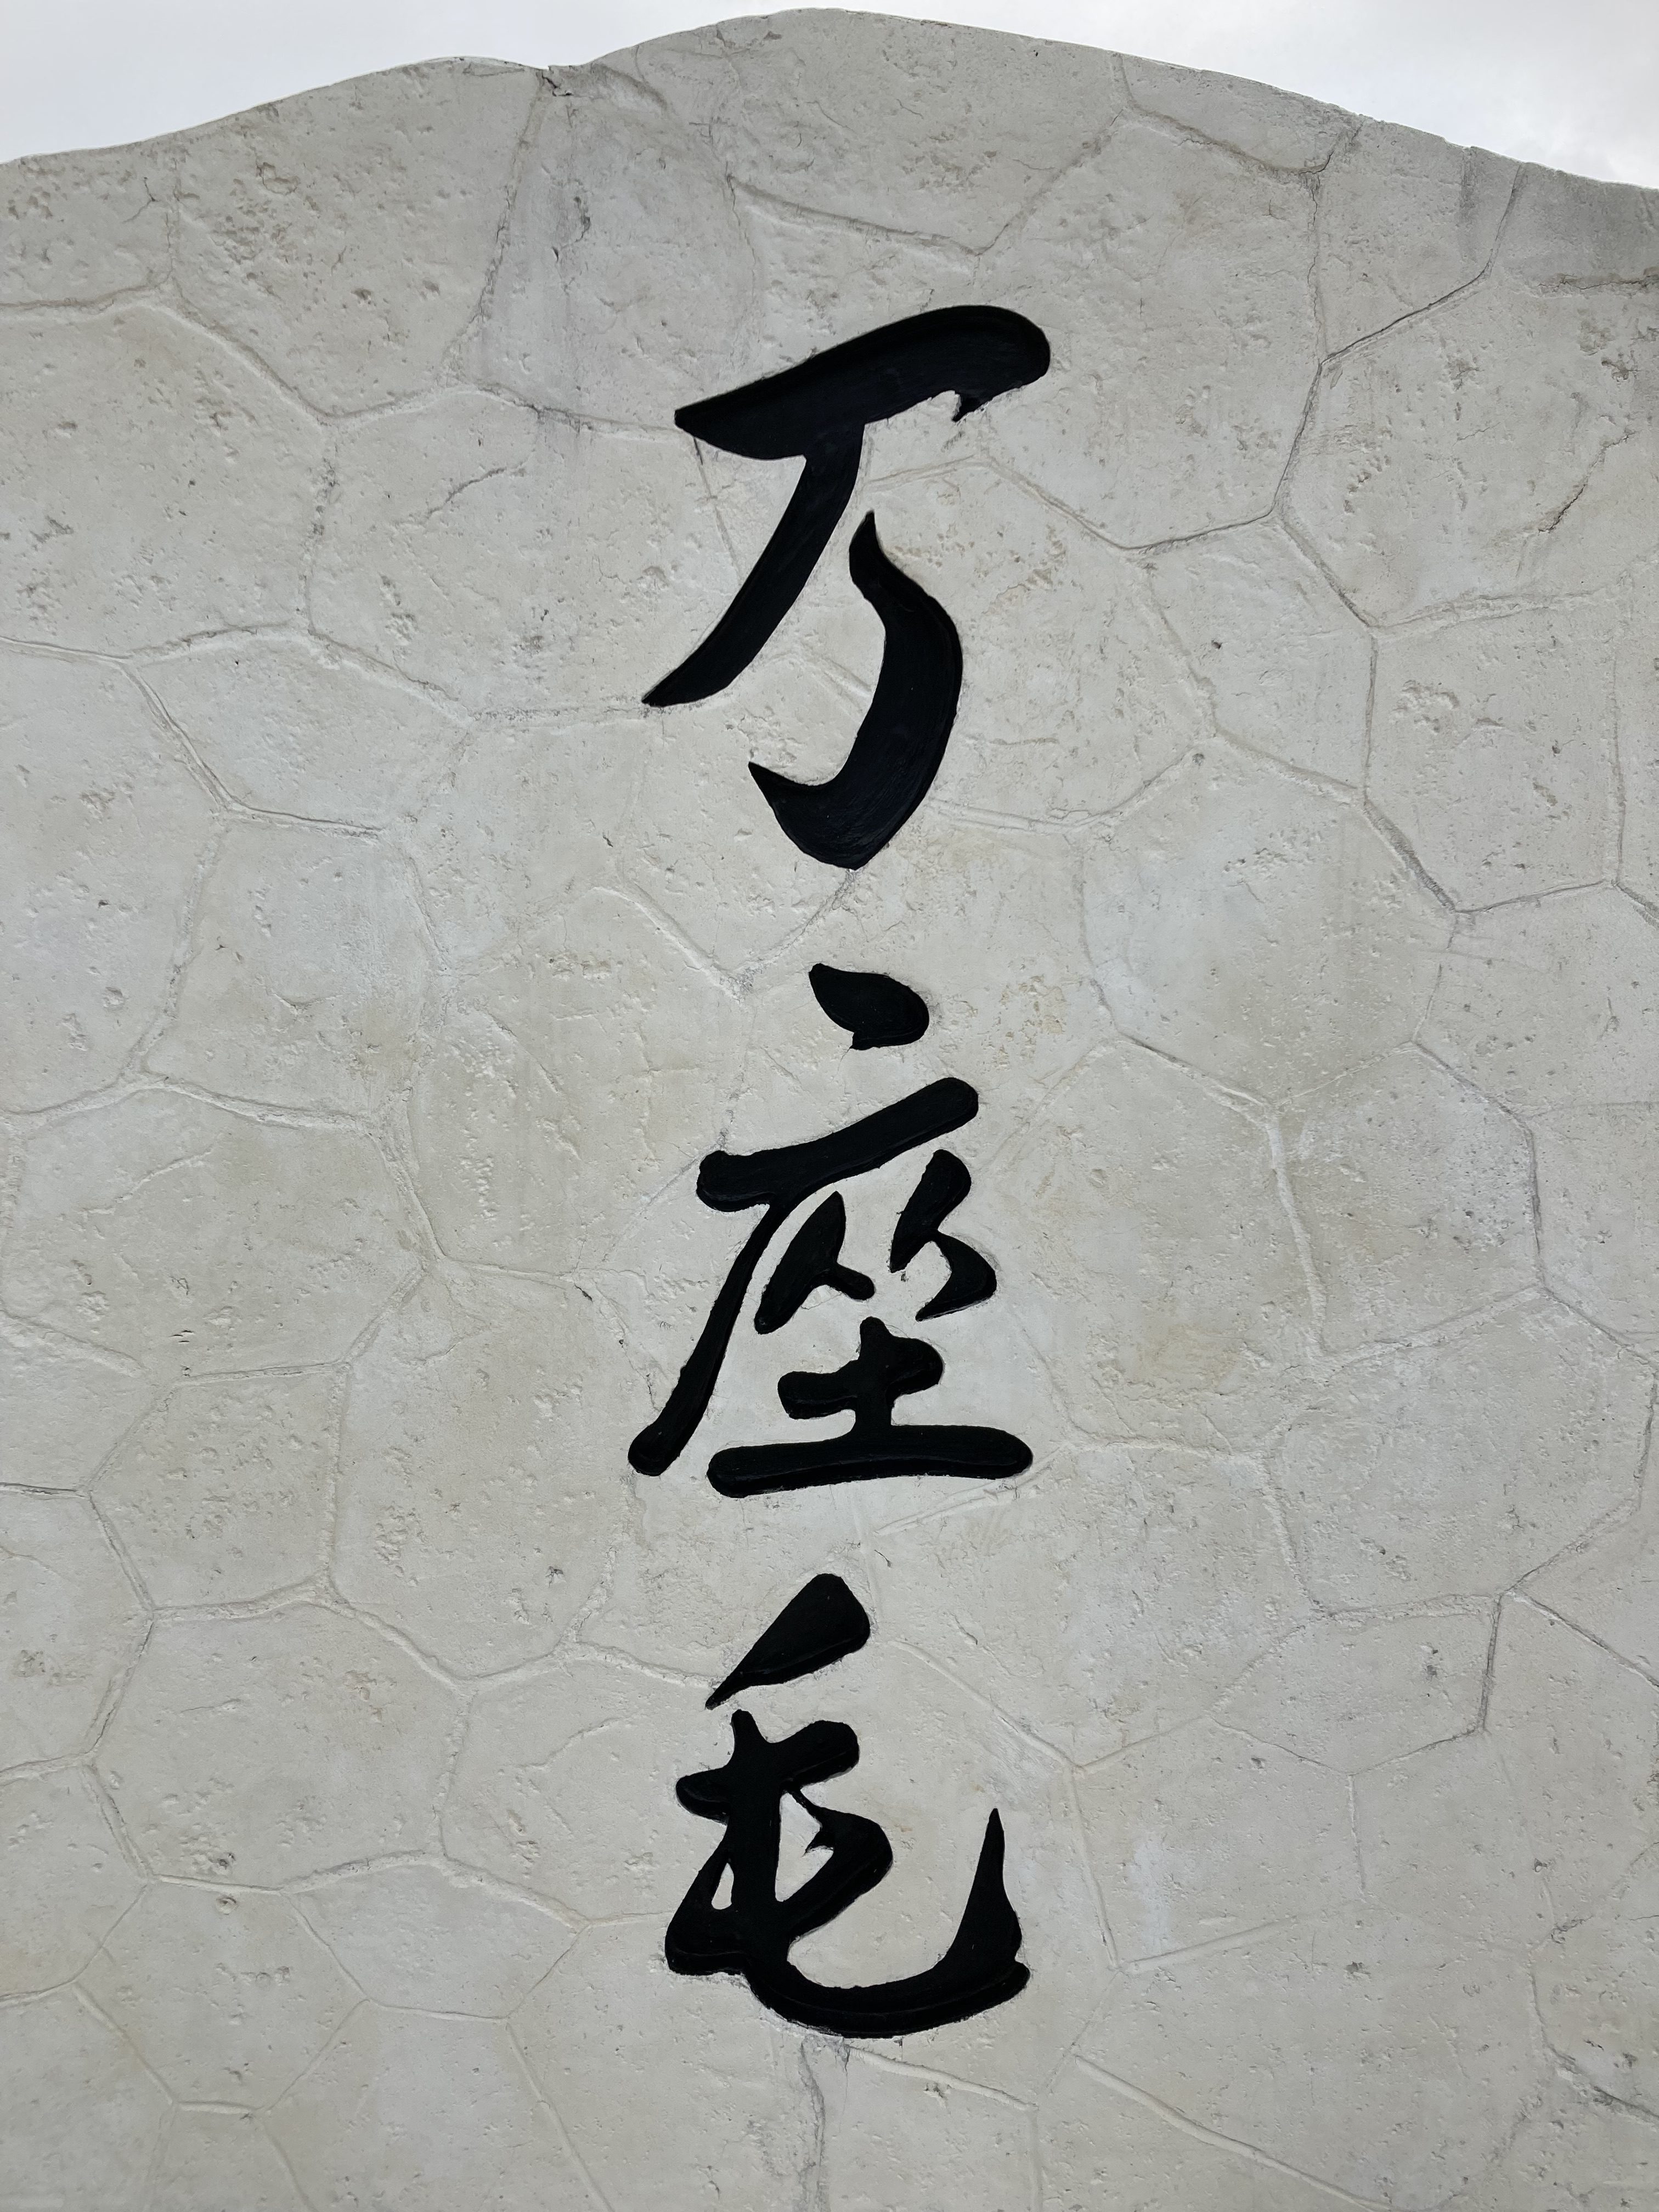 万座毛